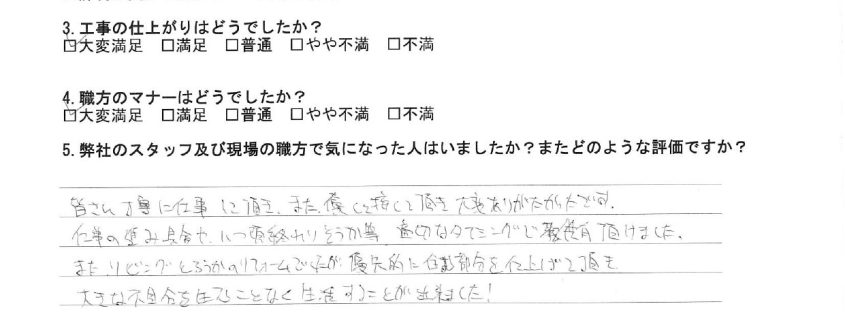 3. 工事の仕上がりはどうでしたか？
☑大変満足 □満足 □普通 □やや不満 □不満
4. 職方のマナーはどうでしたか？
☑大変満足 □満足 □普通 □やや不満 □不満
5. 弊社のスタッフ及び現場の職方で気になった人はいましたか？またどのような評価ですか？
皆さん丁寧に仕事して頂き、また、優しく接して頂き大変ありがたかったです。
仕事の進み具合や、いつ頃終わりそうか等、適切なタイミングで教えて頂けました。
また リビングとろうかのリフォームでしたが 優先的に 部分を仕上げて頂き
大きな不自分を
生活することが出来ました！